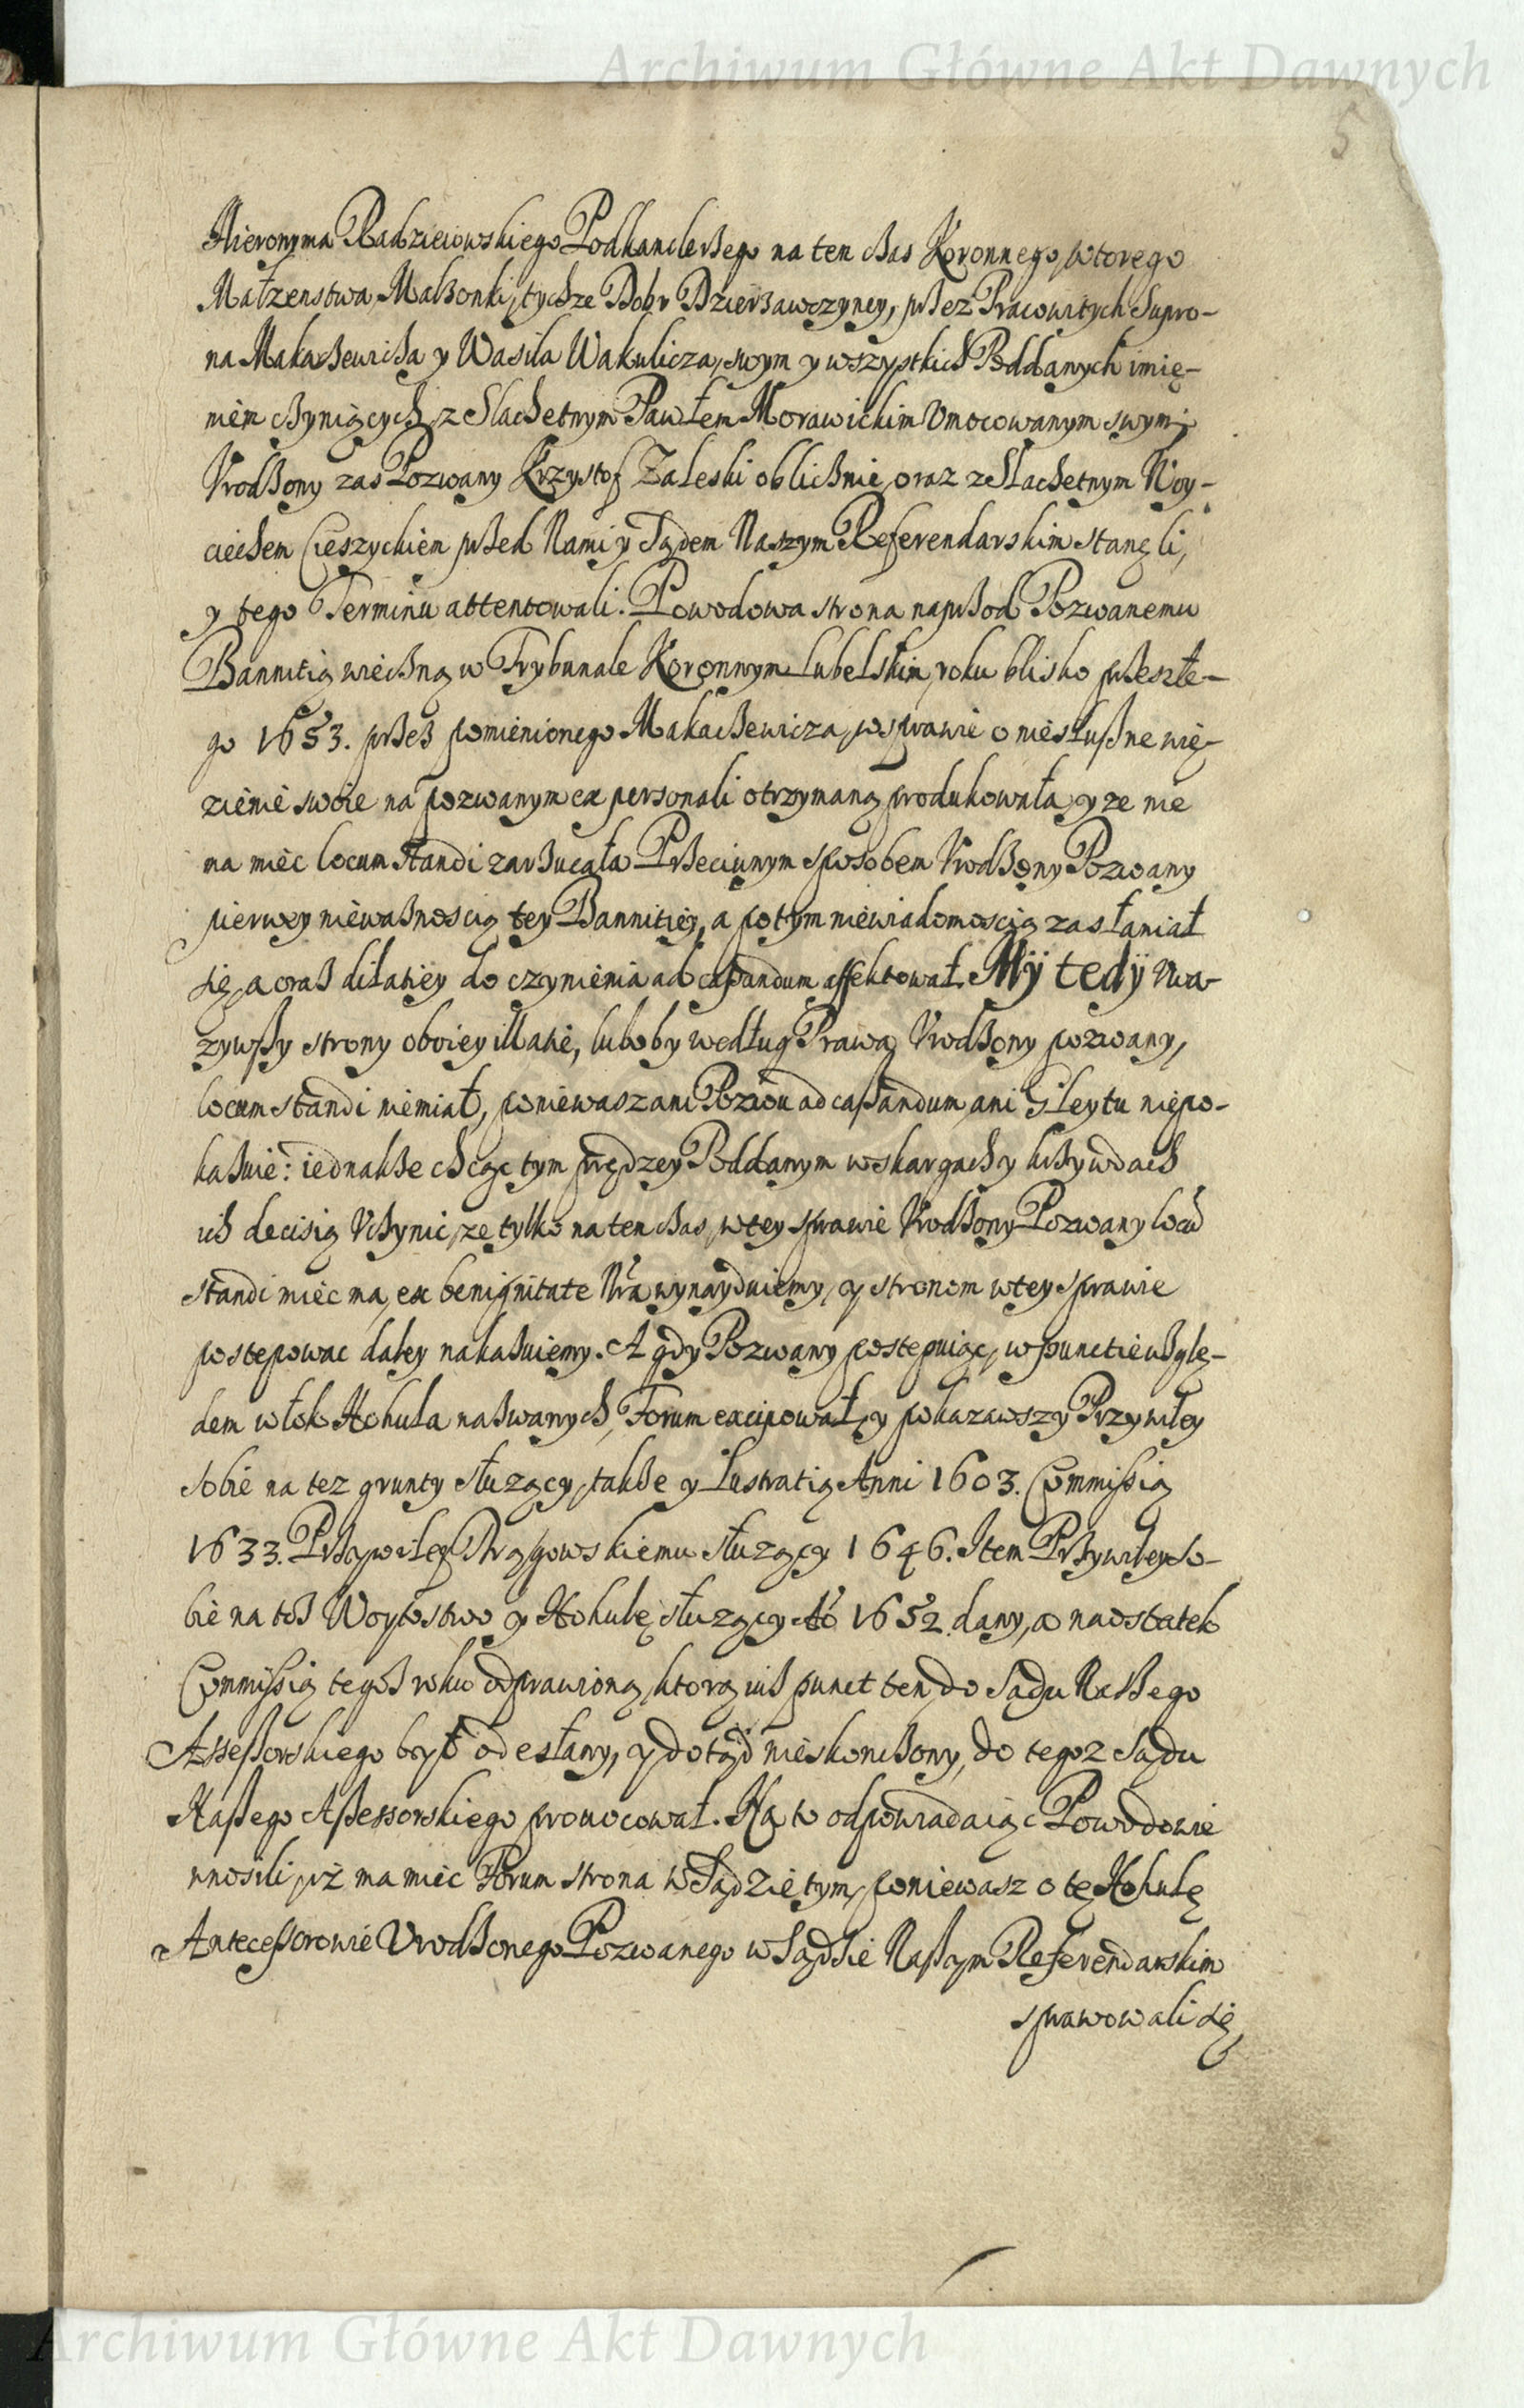 Archiwum Główne Akt Dawnych
5
Hieronyma Radzieiowskiego Podkanclerzego na ten czas Koronnego, wtorego
Małzenstwa, Małzonki, tychze Dobr Dzierzawczyney, przez Pracowitych Supro-
na Makaszewicza y Wasila Wakulicza, swym y wszystkich Poddanych imię-
niem czyniących, z Slachetnym Pawłem Morawickim Vmocowanym swym;
Vrodzony zas Pozwany Krzysztof Zaleski oblicznie, oraz z Slachetnym Woy-
ciechem Cieszyckiem przed Nami y Sądem Naszym Referendarskim stanęli,
y tego Terminu attentowali. Powodowa strona naprzod Pozwanemu
Bannitią wieczną w Trybunale Koronnym Lubelskim, roku blisko przeszłe-
go 1653. przez pomienionego Makaszewicza, w sprawie o niesłuszne wię-
zienie swoie na pozwanym ex personali otrzymaną produkowała, y ze nie
ma miec locum standi zarzucała. Przeciwnym sposobem Vrodzony Pozwany
pierwey niewaznoscią tey Bannitiey, a potym niewiadomoscią zasłaniał
się, a oraz dilatiey do czynienia ad cassandum affektował. My tedy Vwa-
zywszy strony oboiey illatie, luboby według Prawa Vrodzony pozwany,
locum standi niemiał, poniewasz ani Pozwu ad cassandum, ani Gleytu niepo-
kazuie: iednakze chcąc tym prędzey Poddanym w skargach y krzywdach
ich decisią Vczynic, ze tylko na ten czas, w tey sprawie Vrodzony Pozwany locu
standi miec ma, ex benignitate Nra wynayduiemy, y stronom w tey sprawie
postepowac daley nakazuiemy. A gdy Pozwany postepuiąc, w punctie wzglę-
dem włok Hohula nazwanych, Forum excipował, y pokazawszy Przywiley
sobie na tez grunty słuzący, takze y Lustratią Anni 1603. Commissią
1633. Przywiley Strązowskiemu słuzący 1646. Item Przywiley so-
bie na toz Woytostwo y Hohulę słuzący Ao 1652 dany, a naostatek
Commissią tegoz roku odprawioną, ktorą iusz punct ten do Sądu Naszego
Assessorskiego był odesłany, y dotąd nieskonczony, do tegoz Sądu
Naszego Assessorskiego prowocował. Na to odpowiadaiąc Powodowie
wnosili, yż ma miec Forum strona w Sądzie tym, poniewasz o tę Hohulę
Antecessorowie Vrodzonego Pozwanego w Sądzie Naszym Referendarskim
sprawowali się,
Archiwum Główne Akt Dawnych